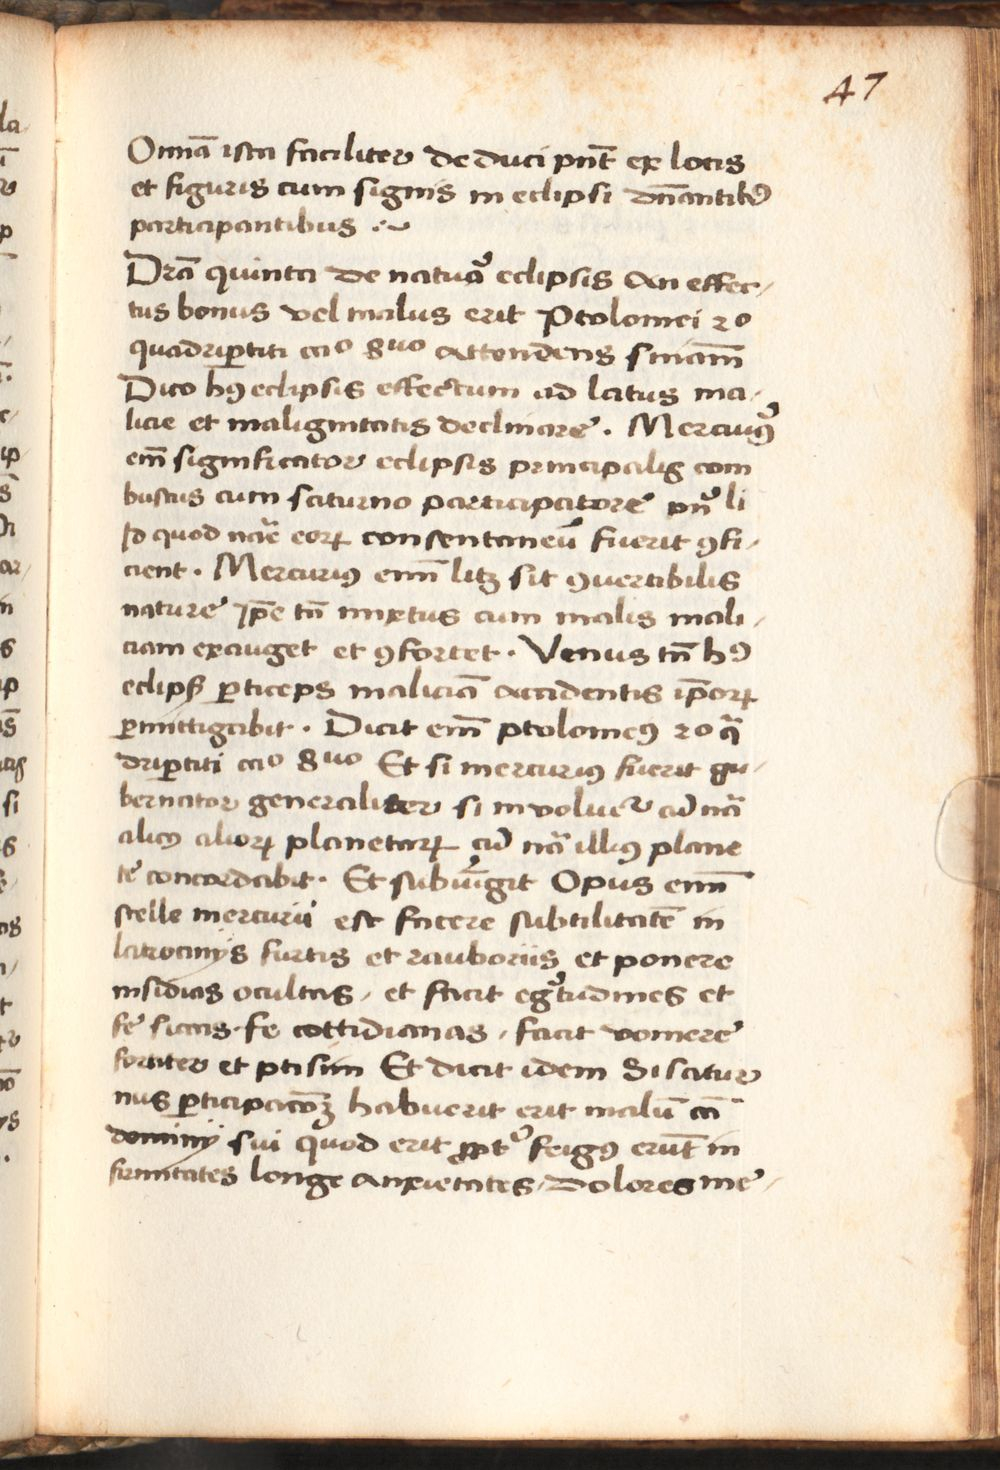 47
Om̄ia ista faciliter deduci pn̄t ex locis
et figuris cum signis in eclipsi dn̄antibꝰ
participantibus
Dr̄a quinta de natura eclipsis An effec-
tus bonus vel malus erit Ptolomei 2o
quadrip̄titi cao 8uo attendens sn̄iam
Dico hꝰ eclipsis effectum ad latus ma-
licie et malignitatis declinare. Mercurius
em̄ significator eclipsis principalis com
bustus cum saturno participatore
Id quod nat̄e eorꝝ consentaneū fuerit ꝯfi-
cient. Mercuriꝰ em̄ litꝫ sit ꝯvertibilis
nature ip̄e tn̄ mixtus cum malis mali-
ciam exauget et ꝯfortet. Venus tn̄ hꝰ
eclips̄ ꝑticeps maliciā accidentis ip̄orꝝ
ꝑmittigabit. Dicit em̄ ptolomeꝰ 2o qᷓ
dripꝑtiti cao 8uo Et si mercuriꝰ fuerit gu-
bernator generaliter si involvit᷑ cū nā
alicꝰ aliorꝝ planetarꝝ cū nā illiꝰ plane
te concordabit. Et subiūgit Opus em̄
stelle mercurii est facere subtilitatē in
latrocinijs furtis et rauboriis et ponere
insidias ocultas, et facit egᷓtudines et
fe siccas fe cottidianas, facit vomere
fortiter et ptisim Et dicit idem Si satur
nus ꝑticipacōꝫ habuerit erit malū cā
dominij sui quod erit ꝓpt᷑ frigꝰ erūt in
firmitates longe anxietates, dolores me-